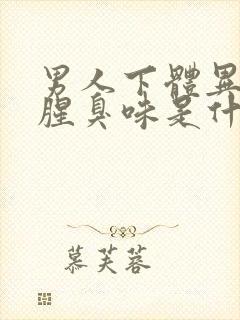 男人下體異
腥臭味是什
慕芙蓉